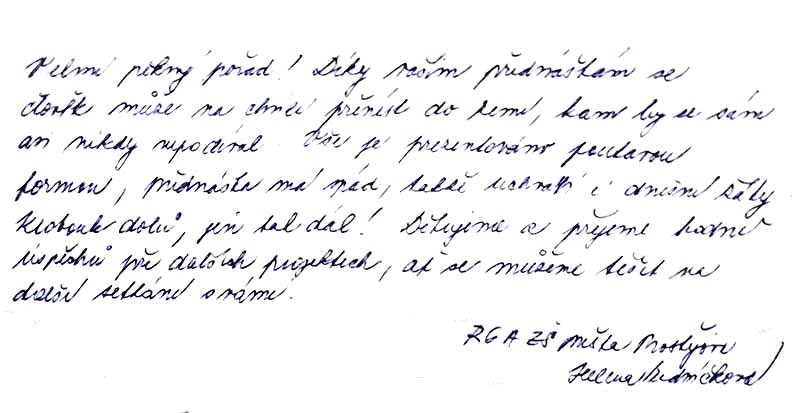 Velmi pěkný pořad! Díky vašim přednáškám se
člověk může na chvíli přenést do zemí, kam by se sám
asi nikdy nepodíval. Vše je prezentováno poutavou
formou, přednáška má spád, takže uchvátí i dnešní žáky.
Klobouk dolů, jen tak dál! Děkujeme a přejeme hodně
úspěchů při dalších projektech, ať se můžeme těšit na
další setkání s vámi.
RG A ZŠ města Prostějova
Helena